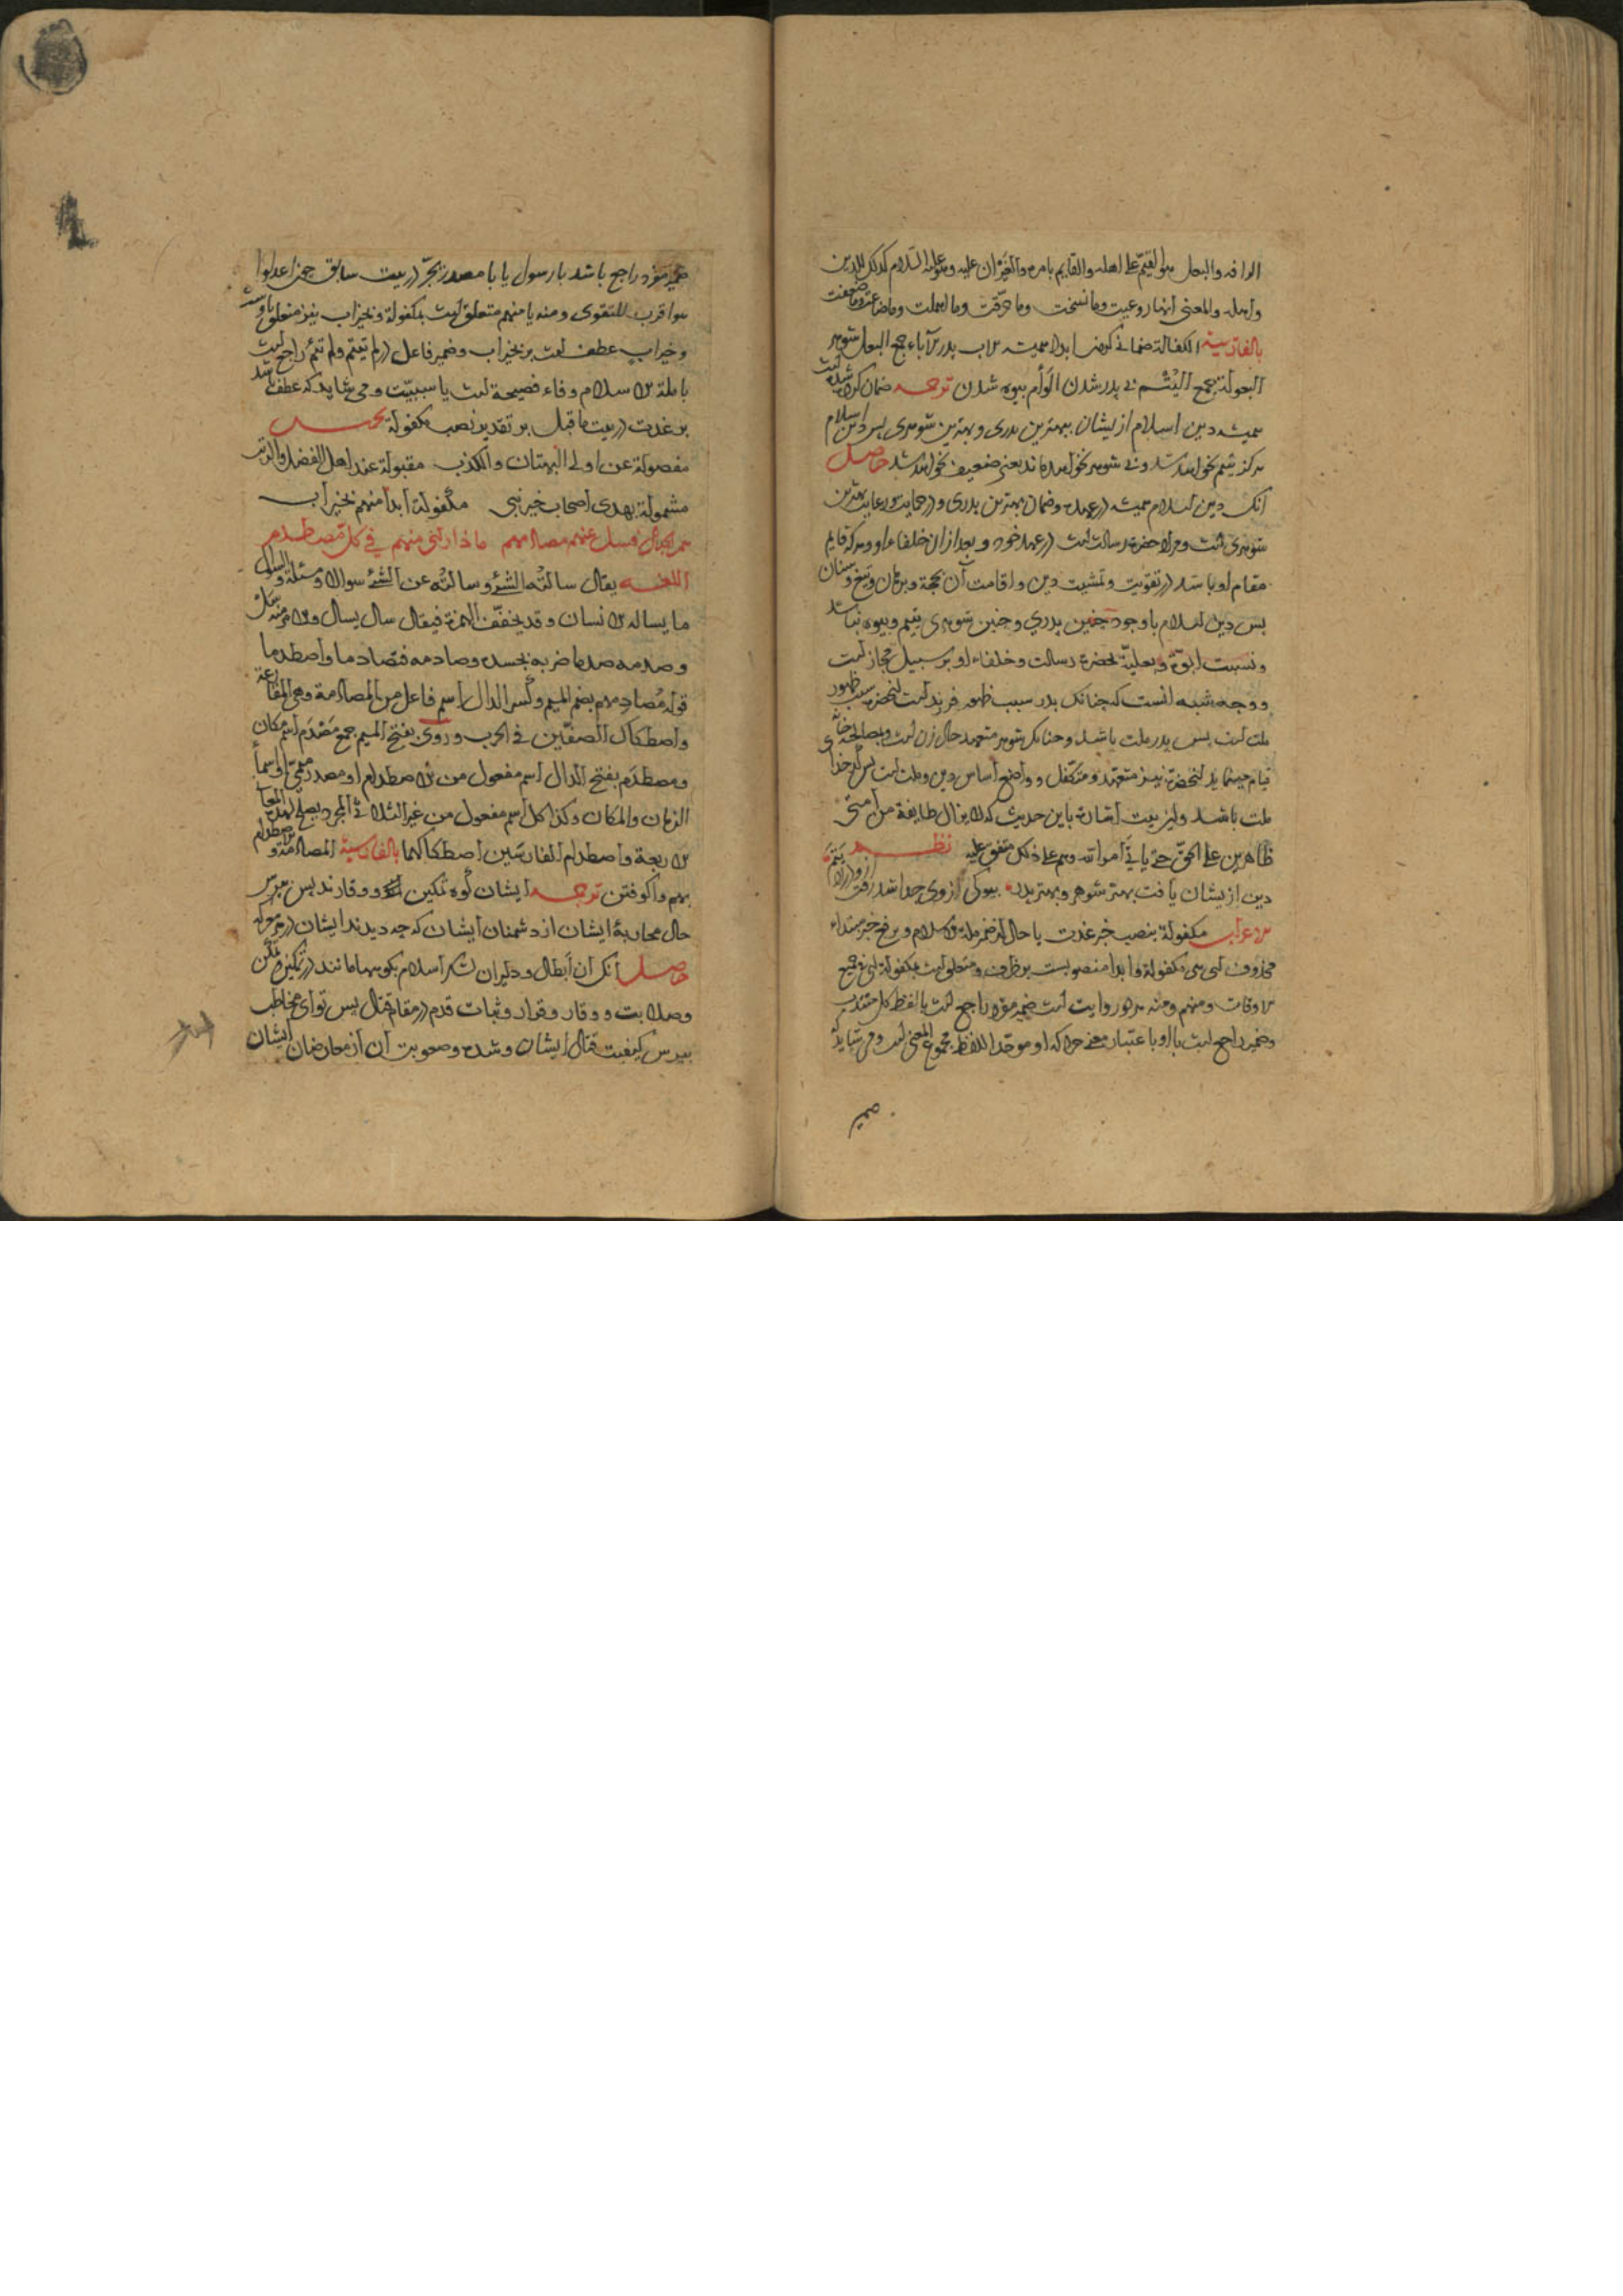 الرافه والبعل هو القیّم علی اهله والقایم بامره والغیران علیه وهو علیه السّلام کذلک للدین
واهله والمعنی انها روعیت وما نسخت وما حرّفت وما اهملت وما ضاعت وما ضعفت
بالفارسیة الکفالة ضمانی کردن ابدا همیشه الاب بدر الآباء جمع البعل شوهر
البعولة جمع الیُتْم بی پدر شدن الوأم بیوه شدن ترجمه ضمان کرده شده است
همیشه دین اسلام از ایشان ببهترین بدری وبهترین شوهری بس دین اسلام
هرکز یتیم نخواهد شد وبی شوهر نخواهد ماند یعنی ضعیف نخواهد شد حاصل
آنک دین اسلام همیشه در عهده وضمان بهترین بدری ودر حمایت ورعایت بهترین
شوهری است ومراد حضرت رسالت است در عهد خود وبعد از ان خلفاء او وهرکه قایم
مقام او باشد در تقویت وتمشیت دین واقامت آن بحجة وبرهان وتیغ وسنان
بس دین اسلام باوجود جنین بدری وجنین شوهری یتیم وبیوه نباشد
ونسبت ابوّة وبعلیّة بحضرت رسالت وخلفاء او بر سبیل مجاز است
ووجه شبه آنست که جنانک بدر سبب ظهور فرزند است آنحضرت سبب ظهور
ملت است بس بدر ملت باشد وجنانک شوهر متعهد حال زن است وبمصالح خانه
قیام مینماید آنحضرت نیز متعهد ومتکفّل وواضع اساس دین وملت است بس کدخدای
ملت باشد واین بیت اشارت باین حدیث که لا یزال طایفة من امتی
ظاهرین علی الحقّ حتی یاتی امر الله وهم علی ذلک متفق علیه نظم
دین از ایشان یافت بهتر شوهر وبهتر بدر بیوکی از وی جدا شد
الاعراب مکفولة بنصب خبر غدت یا حال از ضمیر ملة الاسلام وبرفع خبر مبتداء
محذوف ای هی مکفولة وابدا منصوبست بر ظرف ومتعلق است بمکفولة ای فی جمیع
الاوقات ومنهم ومنه هر دو روایت است ضمیر مفرد راجع است با لفظ کل منتدب
وضمیر راجع است با او باعتبار معنی جرا که او موحد اللفظ مجموع المعنی است ومی شاید که
ضمیر
ضمیر مفرد راجع باشد با رسول یا با مصدر بجرّ در بیت سابق جون اعدلوا
هو اقرب للتقوی ومنه یا منهم متعلق است بمکفولة وبخیر اب نیز متعلق باوست
وخیر اب عطف است بر بخیر اب وضمیر فاعل در لم تیتم ولم تئم راجع است
با ملة الاسلام وفاء فصیحة است یا سببیّت ومی شاید که عطف باشد
بر غدت در بیت ما قبل بر تقدیر نصب مکفولة تخمیس
مفصولة عن اولی البهتان والکذب مقبولة عند اهل الفضل والادب
مشمولة بهدی اصحاب خیر نبی مکفولة ابدا منهم بخیر اب
هم الجبال فسل عنهم مصادمهم ماذا رای منهم فی کل مصطدم
اللغه یقال سالتُه الشئ وسالتُه عن الشئ سوالا ومسئلة والسؤل
ما یساله الانسان وقد یخفّف الهمزة فیقال سال یسال والامر منه سَلْ
وصدمه صدما ضربه بجسده وصادمه فتصادما واصطدما
قوله مُصادِمهم بضم المیم وکسر الدال اسم فاعل من المصادمة وهی المقارعة
واصطکاک الصفّین فی الحرب وروی بفتح المیم جمع مَصْدَم اسم مکان
ومصطدَم بفتح الدال اسم مفعول من الاصطدام او مصدر میمیّ او اسما
الزمان والمکان وکذا کل اسم مفعول من غیر الثلاثی المجرد یصلح لهذه المعانی
الاربعة واصطدام الفارسَین اصطکاکهما بالفارسیة المصادمة والاصطدام
بهم واکوفتن ترجمه ایشان کوه تمکین ووقارند بس ببرس
حال محاربهٔ ایشان از دشمنان ایشان که جه دیدند ایشان در هر معرکه
حاصل آنک ان ابطال ودلیران لشکر اسلام بکوهها مانند در تمکین وتمکّن
وصلابت ووقار وقرار وثبات قدم در مقام قتال بس تو ای مخاطب
ببرس کیفیت قتال ایشان وشدت وصعوبت آن از معارضان ایشان